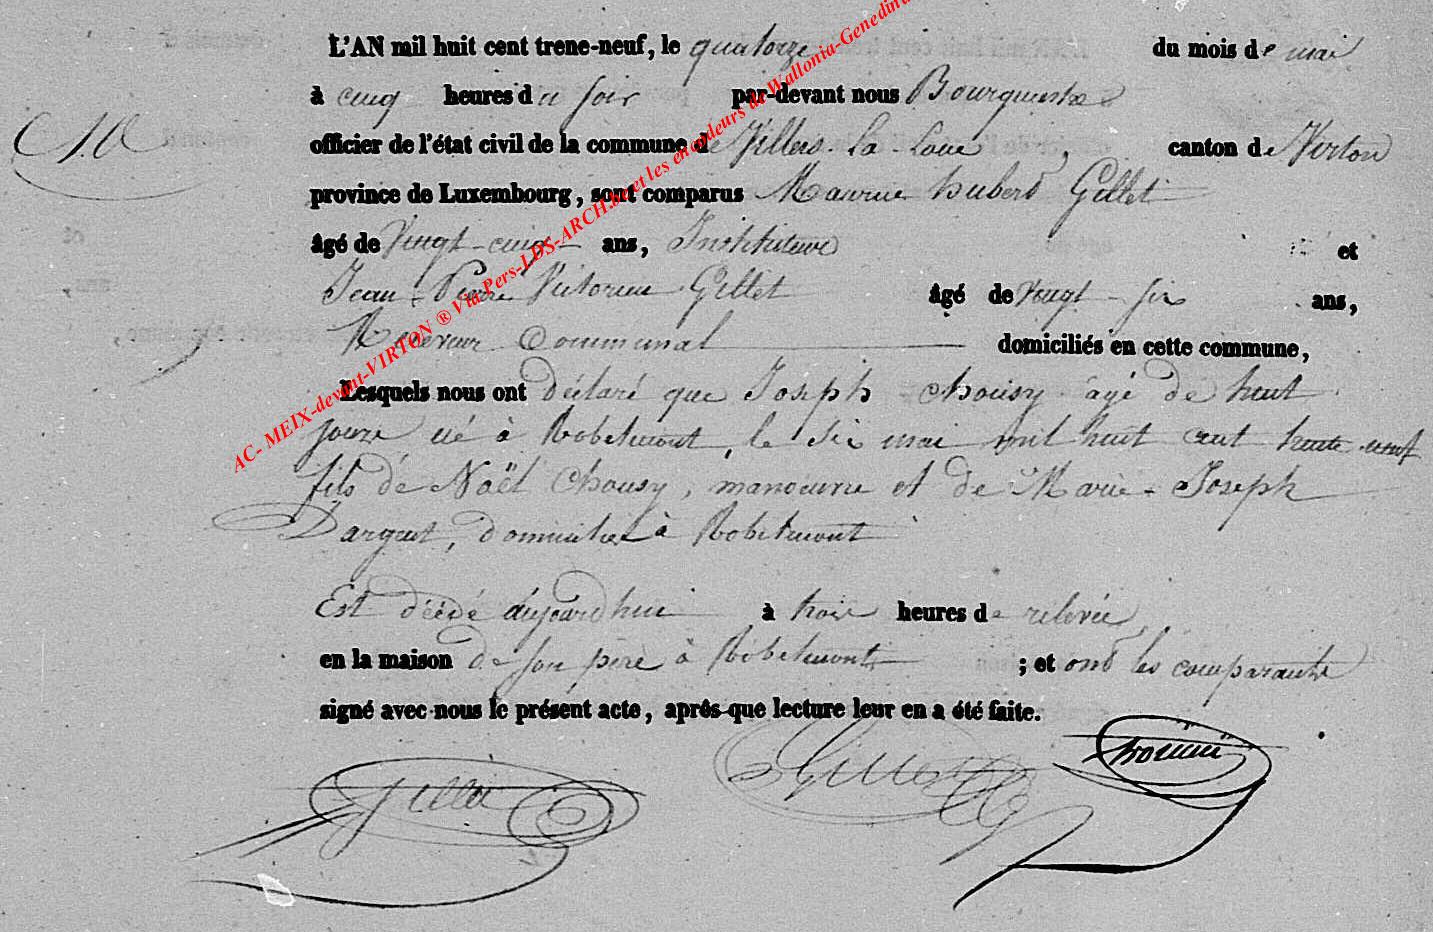 L'AN mil huit cent trene-neuf, le quatorze du mois de mai
à cinq heures du soir par-devant nous
officier de l'état civil de la commune de Villers-La-Loue, canton de Virton
province de Luxembourg, sont comparus Maurice hubert Gillet
âgé de Vingt-cinq ans, Instituteur et
Jean-Pierre Victorien Gillet âgé de Vingt-six ans,
Receveur Communal domiciliés en cette commune,
Lesquels nous ont déclaré que Joseph Chousy âgé de huit
jours né à Robelmont, le six mai mil huit cent trente neuf
fils de Noël Chousy, manoeuvre et de Marie-Joseph
Darguet, domiciliés à Robelmont
Est décédé aujourd'hui à trois heures de relevée,
en la maison de son père à Robelmont ; et ont les comparants
signé avec nous le présent acte, après-que lecture leur en a été faite.
Gillet Gillet
AC- MEIX-devant-VIRTON ® Via Pers-LDS-ARCH.be et les encodeurs de Wallonia-Genedinra